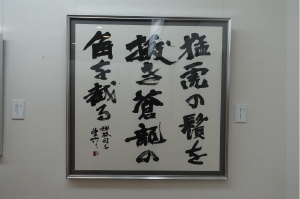 猛虎の鬚を
抜き蒼龍の
角を截る